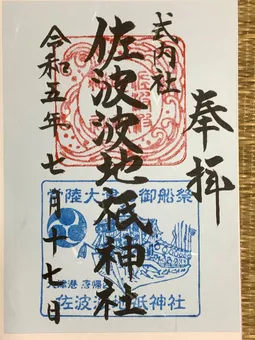 奉拝
式内社
佐波波地祇神社
令和五年七月十七日
常陸大津の御船祭
佐波波地祇神社